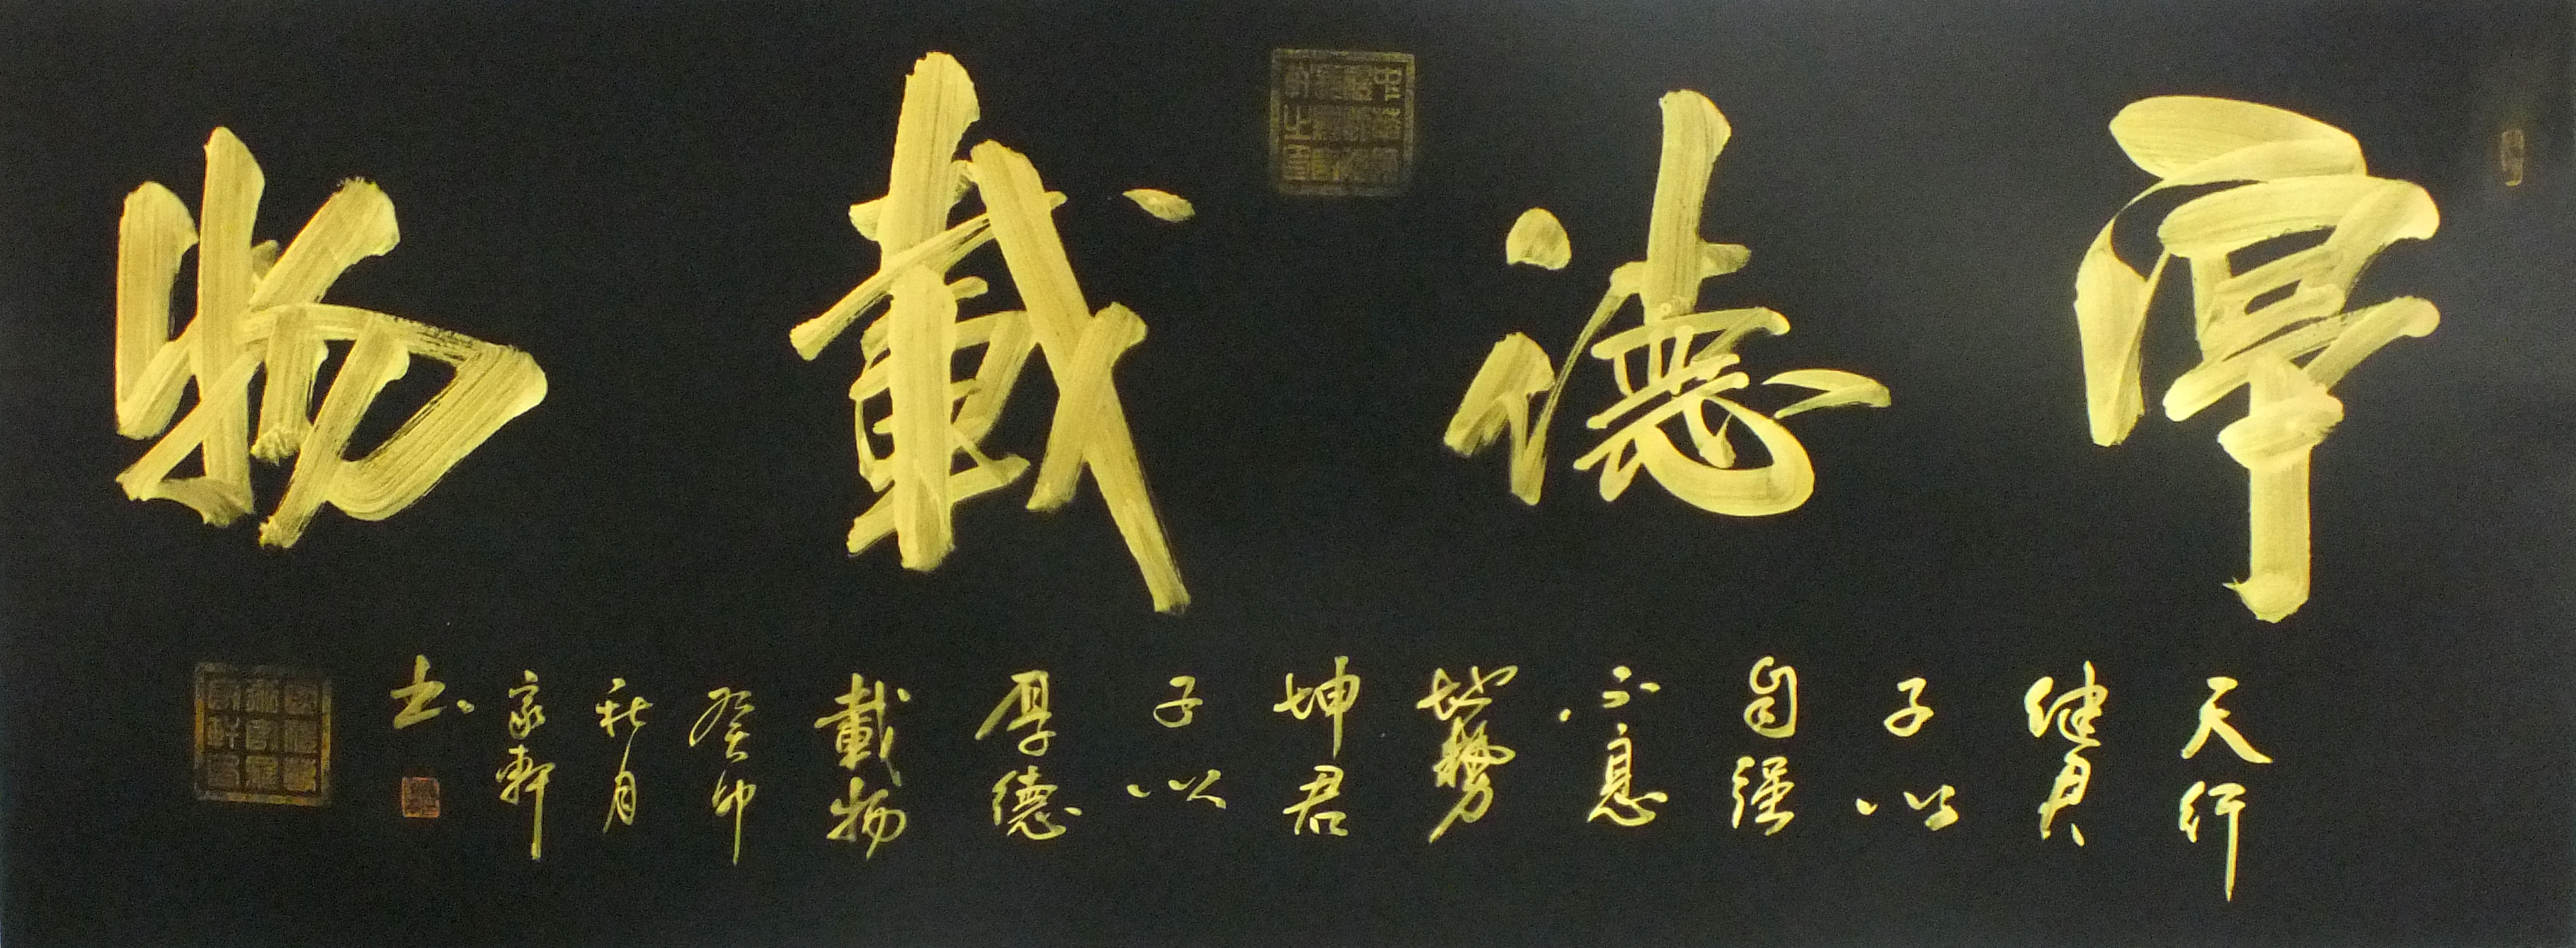 厚德載物
天行
健君
子以
自强
不息
地勢
坤君
子以
厚德
載物
癸卯
秋月
家軒
书